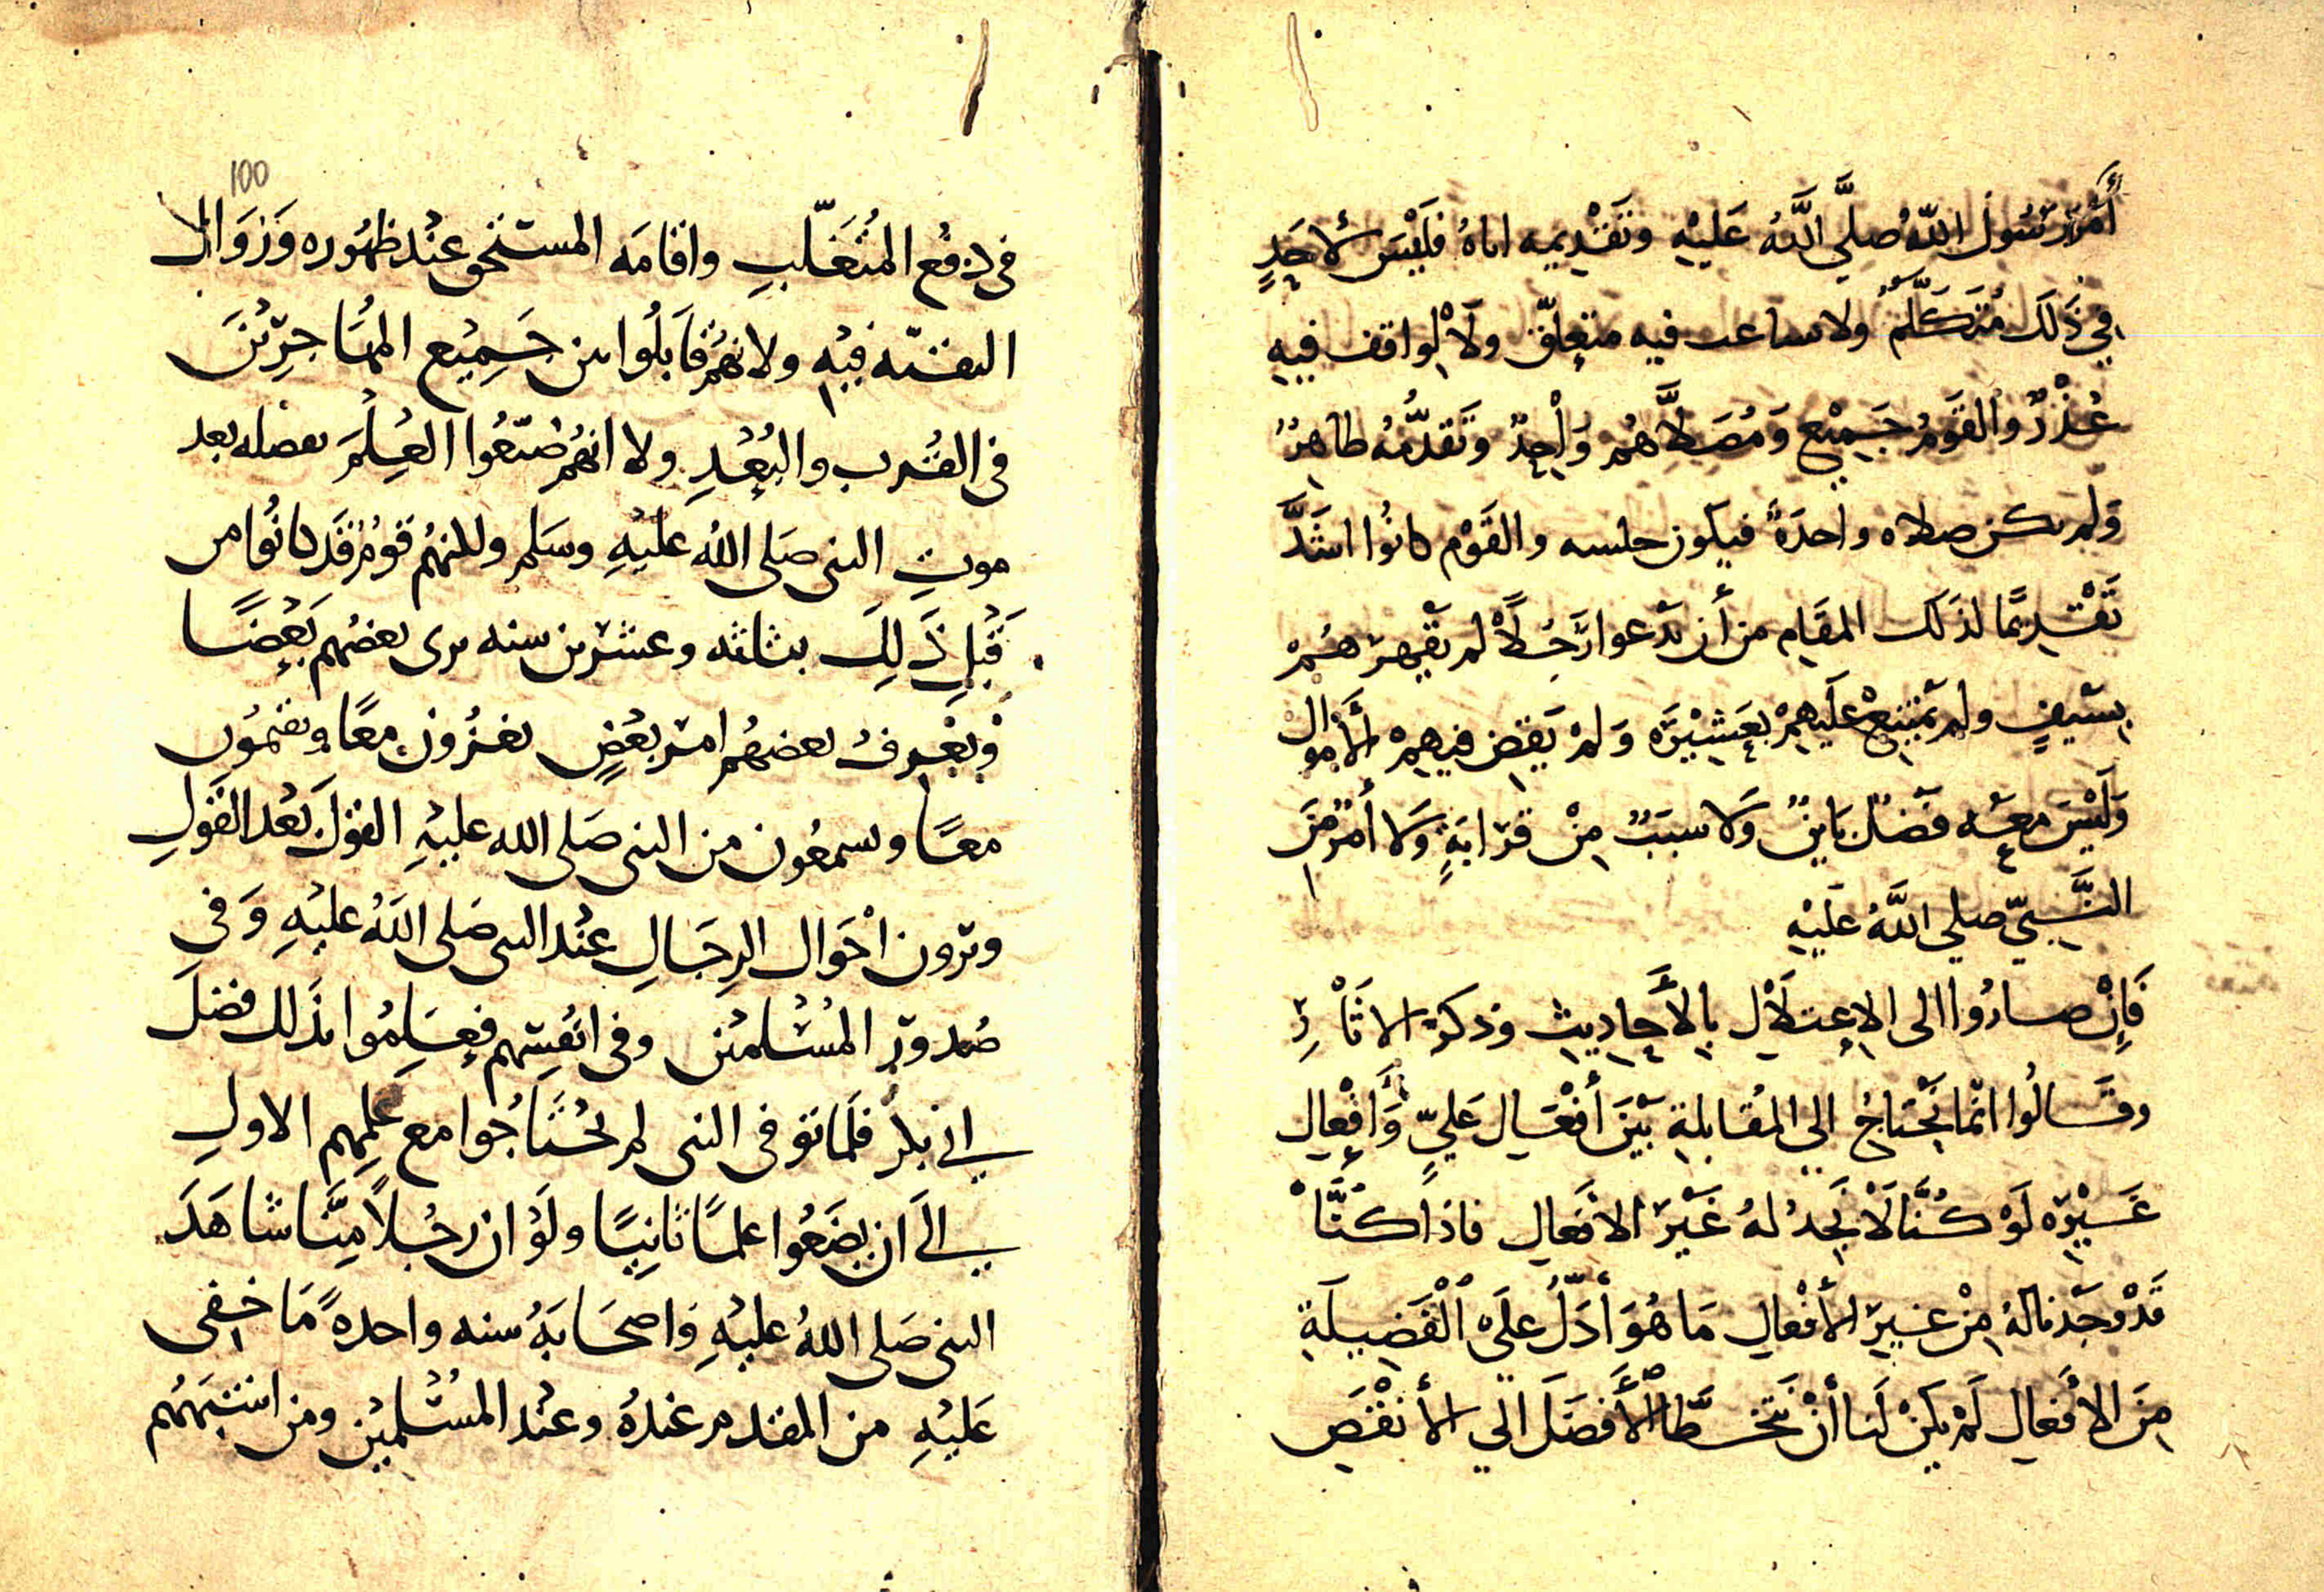 أَمْرَ رَسُول اللّه صلَّي اللَّهُ عَلَيْهِ وتَقْدِيمِه اياهُ فَلَيْسَ لأحَدٍ
فِي ذَلَك مُتَكَلَّمٌ ولا ساعب فيه متعلّق ولَا لِواقف فيهِ
عُذْرٌ والقَومُ جَمِيْعٌ وَمُصَلَّاهُم وَاحِدٌ وتَقَدُّمُه ظاهِرٌ
وَلم يكن صلاه واحدَةً فيكون خلسه والقَوْم كانُوا اشَدَّ
تَقْدِيمًا لذلَك المقَامِ من أن يَدَعوا رَجُلًا لم يَقْهرْهُمْ
بسَيفٍ ولم يمْتنِعْ عَلَيهِمْ بِعَشِيْرَه وَلمْ يَقضِ فيهِمْ الأَموال
وَلَيْسَ معَه فَضْل بَاينٌ وَلا سببٌ مِنْ قرَابَةٍ وَلا أمْر مِنَ
النَّبِيّ صلي اللَّهُ عَلَيْهِ
فَإِنْ صارُوا الى الاعتلَال بِالأَحاديثِ وذكر الاثَارِ
وقَالُوا انّما نَحْتاجُ الي المُقابلةِ بَيْنَ أفْعَال عَليٍّ وَأَفْعالِ
غَيْرِه لَوْ كُنَّا لَا نَجِدُ لهُ غَيْرَ الافعَالِ فاذا كنَّا
قَدْ وجَدْنا لهُ مِنْ غيرِ الأفْعالِ مَا هُوَ أَدَلُّ علَى الْفَضِيلَةِ
مِنَ الأَفعالِ لَمْ يكنْ لَنا أنْ نَتخَطَّا الأَفضَلَ الي الأنْقَصِ
100
فى دفع المُتَغَلّبِ واقامَه المستحق عنْد ظهُوره وَزَوَال
التقيّه فيْهِ ولا انهُم قابَلُوا بين جَمِيْع المُهَاجِرِيْنَ
فى القُرب والبُعْدِ ولا انهُم ضَيّعُوا العِلْمَ بفضله بعد
موتِ النبى صَلى اللهُ عليْهِ وسَلم ولكنهُم قومٌ قَد كانُوا من
قَبْلِ ذَلِكَ بثلثه وعشرين سنه يرى بعضُهم بَعْضًا
وَيَعْرِفُ بعضهُم امرَ بعْضٍ يغزُون معًا ويغنمُون
معًا ويسمعُون من النبى صَلى الله عليْهِ القوْلَ بَعْد القَولِ
ويرَون احْوَال الرجَالِ عنْد النبى صَلى اللهُ عليْهِ وَفى
صُدورِ المُسْلمين وفى انْفسِهم فعَلِمُوا بذَلك فضلَ
ابى بكْر فلَما توفى النبى لم يحْتَاجُوا مع عِلمِهم الاولِ
الَى ان يضَعُوا علمًا ثانيًا ولَوْ ان رجُلًا مِنَّا شاهَدَ
النبى صَلى اللهُ عليْهِ وَاصحَابَهُ سنه واحدهً مَا خفى
عَليْهِ من المقدم عندهُ وعنْد المُسْلميْن ومن اشبههُم